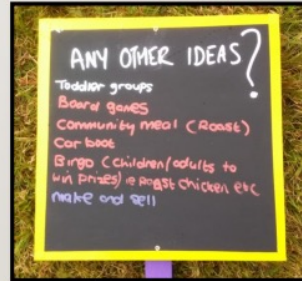 ANY OTHER IDEAS?
Toddler groups
Board games
Community meal (Roast)
Car boot
Bingo (children/adults to
win prizes) ie Roast chicken etc
make and sell